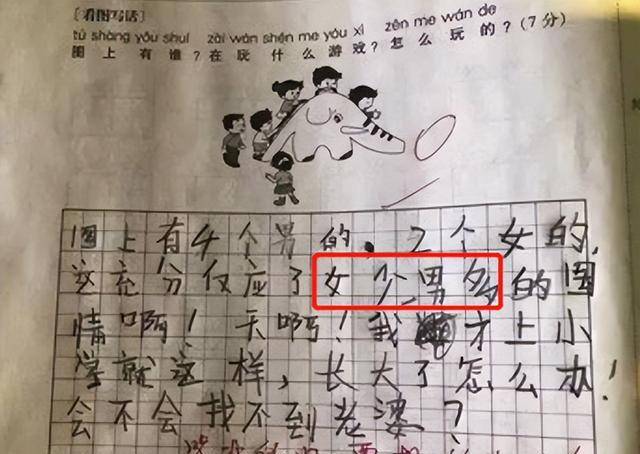 〔看图写话〕
tú shàng yǒu shuí zài wán shén me yóu xì zěn me wán de
图上有谁？在玩什么游戏？怎么玩的？(7分)
图上有4个男的，2个女的，
这充分仅应了女少男多的国
情啊！天啊！我才上小
学就这样，长大了怎么办！
会不会找不到老婆？